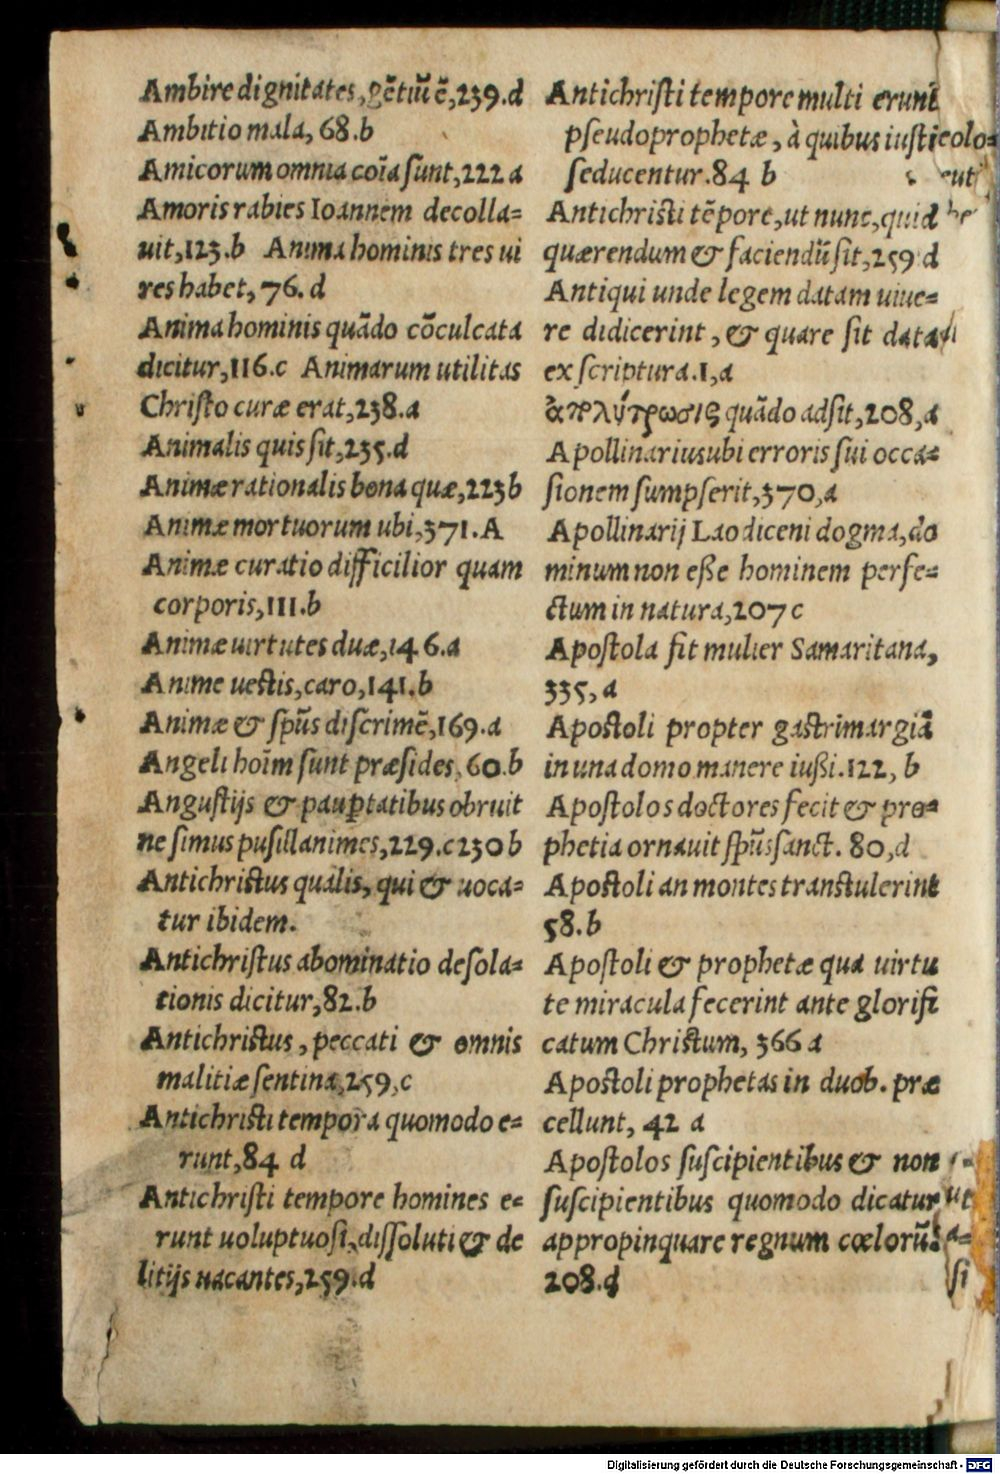 Ambire dignitates, gẽtiũ ẽ, 239.d
Ambitio mala, 68.b
Amicorum omnia coĩa sunt, 222 a
Amoris rabies Ioannem decolla=
uit, 123.b Anima hominis tres ui
res habet, 76. d
Anima hominis quãdo cõculcata
dicitur, 116.c Animarum utilitas
Christo curæ erat, 238.a
Animalis quis sit, 235.d
Animæ rationalis bona quæ, 223 b
Animæ mortuorum ubi, 371. A
Animæ curatio difficilior quam
corporis, 111.b
Animæ uirtutes duæ, 146.a
Anime uestis, caro, 141.b
Animæ & spũs discrimẽ, 169.a
Angeli hoĩm sunt præsides, 60.b
Angustijs & paup̱tatibus obruit
ne simus pusillanimes, 229.c 230 b
Antichristus qualis, qui & uoca=
tur ibidem.
Antichristus abominatio desola=
tionis dicitur, 82.b
Antichristus, peccati & omnis
malitiæ sentina, 259, c
Antichristi tempora quomodo e=
runt, 84 d
Antichristi tempore homines e=
runt uoluptuosi, dissoluti & de
litijs uacantes, 259.d
Antichristi tempore multi erunt
pseudoprophetæ, à quibus iusti
seducentur. 84 b
Antichristi tẽpore, ut nunc, quid
quærendum & faciendũ sit, 259 d
Antiqui unde legem datam uiue=
re didicerint, & quare sit data
ex scriptura. 1, a
ἀπολύτρωσις quãdo adsit, 208, a
Apollinarius ubi erroris sui occa=
sionem sumpserit, 370, a
Apollinarij Laodiceni dogma, do
minum non eße hominem perfe=
ctum in natura, 207 c
Apostola fit mulier Samaritana,
335, a
Apostoli propter gastrimargiã
in una domo manere iußi. 122, b
Apostolos doctores fecit & pro=
phetia ornauit spũs sanct. 80, d
Apostoli an montes transtulerint
58.b
Apostoli & prophetæ qua uirtu
te miracula fecerint ante glorifi
catum Christum, 366 a
Apostoli prophetas in duob. præ
cellunt, 42 a
Apostolos suscipientibus & non
suscipientibus quomodo dicatur
appropinquare regnum cœlorũ:
208.d
Digitalisierung gefördert durch die Deutsche Forschungsgemeinschaft - DFG